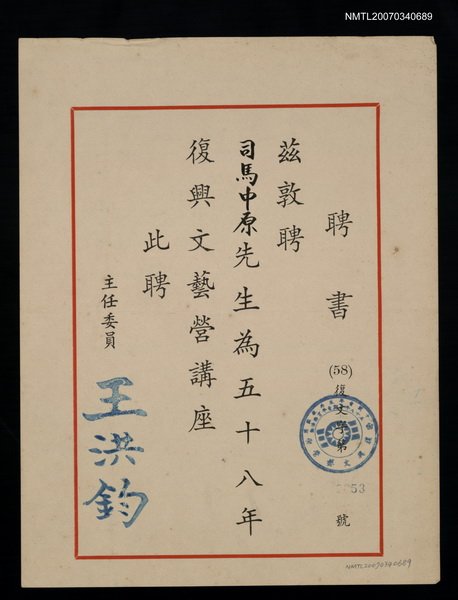 NMTL20070340689
聘書
(58)復文字第
53
號
茲敦聘
司馬中原先生為五十八年
復興文藝營講座
此聘
主任委員
王洪鈞
NMTL20070340689